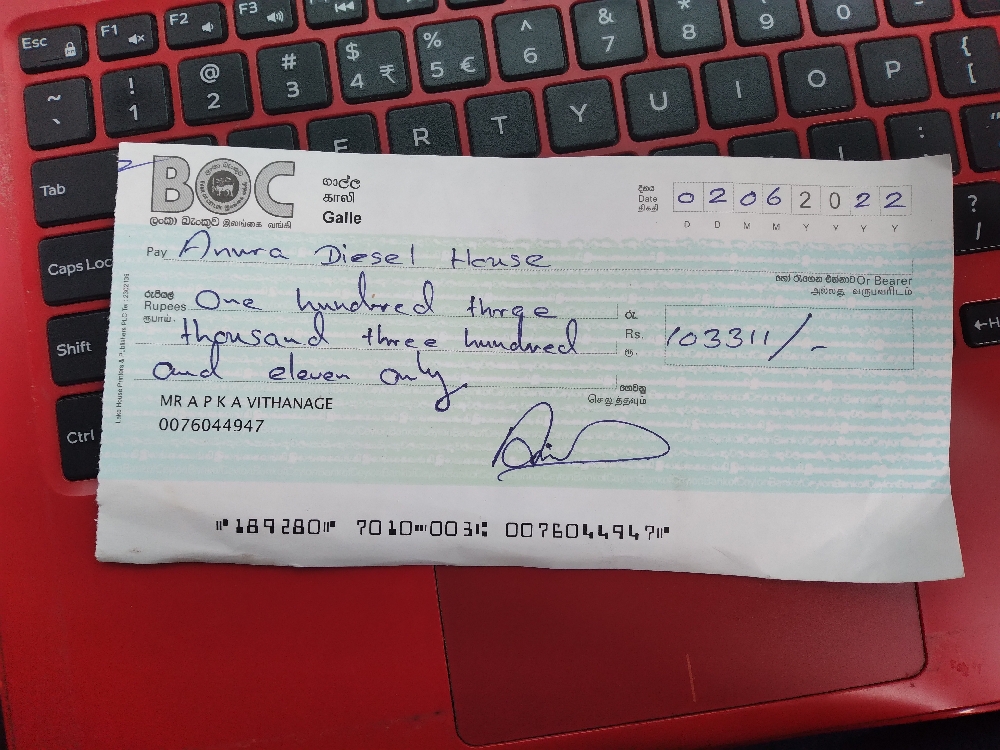 Esc F1 F2 F3
~ ` ! 1 @ 2 # 3 $ 4 ₹ % 5 € ^ 6 & 7 * 8 9 0
Tab E R T Y U I O P { [
Caps Loc
Shift
Ctrl
BOC
ලංකා බැංකුව இலங்கை வங்கி
ගාල්ල
காலி
Galle
දිනය
Date
திகதி
0 2 0 6 2 0 2 2
D D M M Y Y Y Y
Pay Anura Diesel House
හෝ රැගෙන එන්නාට Or Bearer
அல்லது வருபவரிடம்
රුපියල්
Rupees One hundred three
ரூபாய்
thousand three hundred
and eleven only
රු.
Rs. 103311/-
ரூ.
ගෙවනු
செலுத்தவும்
MR A P K A VITHANAGE
0076044947
⑈189280⑈ 7010⑉003⑆ 0076044947⑈